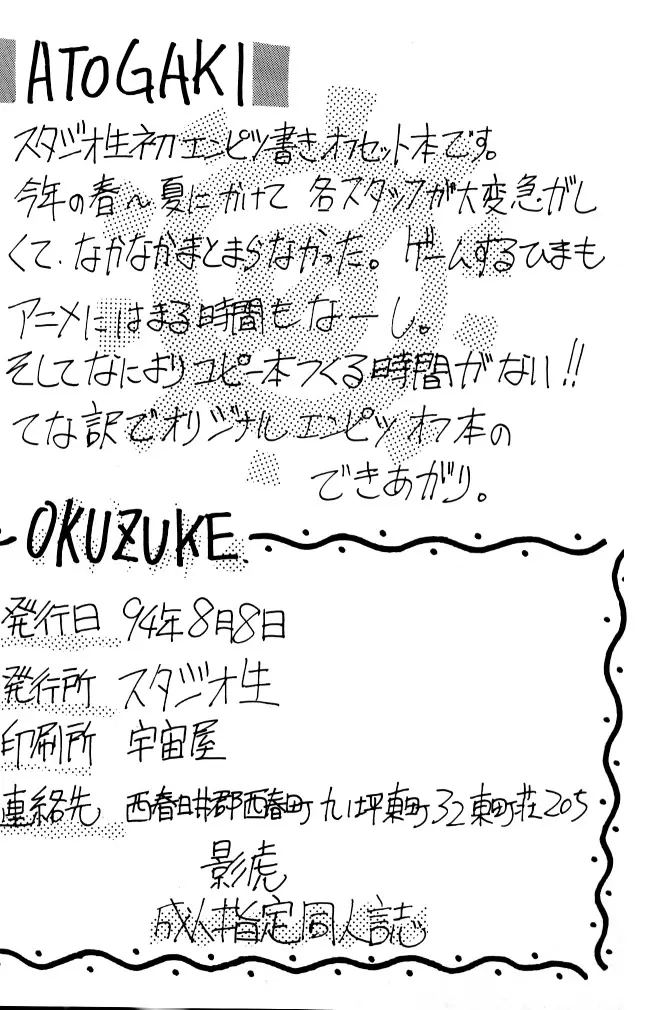 ATOGAKI
スタジオ生初エンピツ書きオフセット本です。
今年の春〜夏にかけて 各スタッフが大変急がし
くて、なかなかまとまらなかった。ゲームするひまも
アニメにはまる時間もなーし。
そしてなによりコピー本つくる時間がない!!
てな訳でオリジナルエンピツオフ本の
できあがり。
OKUZUKE
発行日 94年8月8日
発行所 スタジオ生
印刷所 宇宙屋
連絡先 西春日井郡西春町九ノ坪東町32東町荘205
影虎
成人指定同人誌